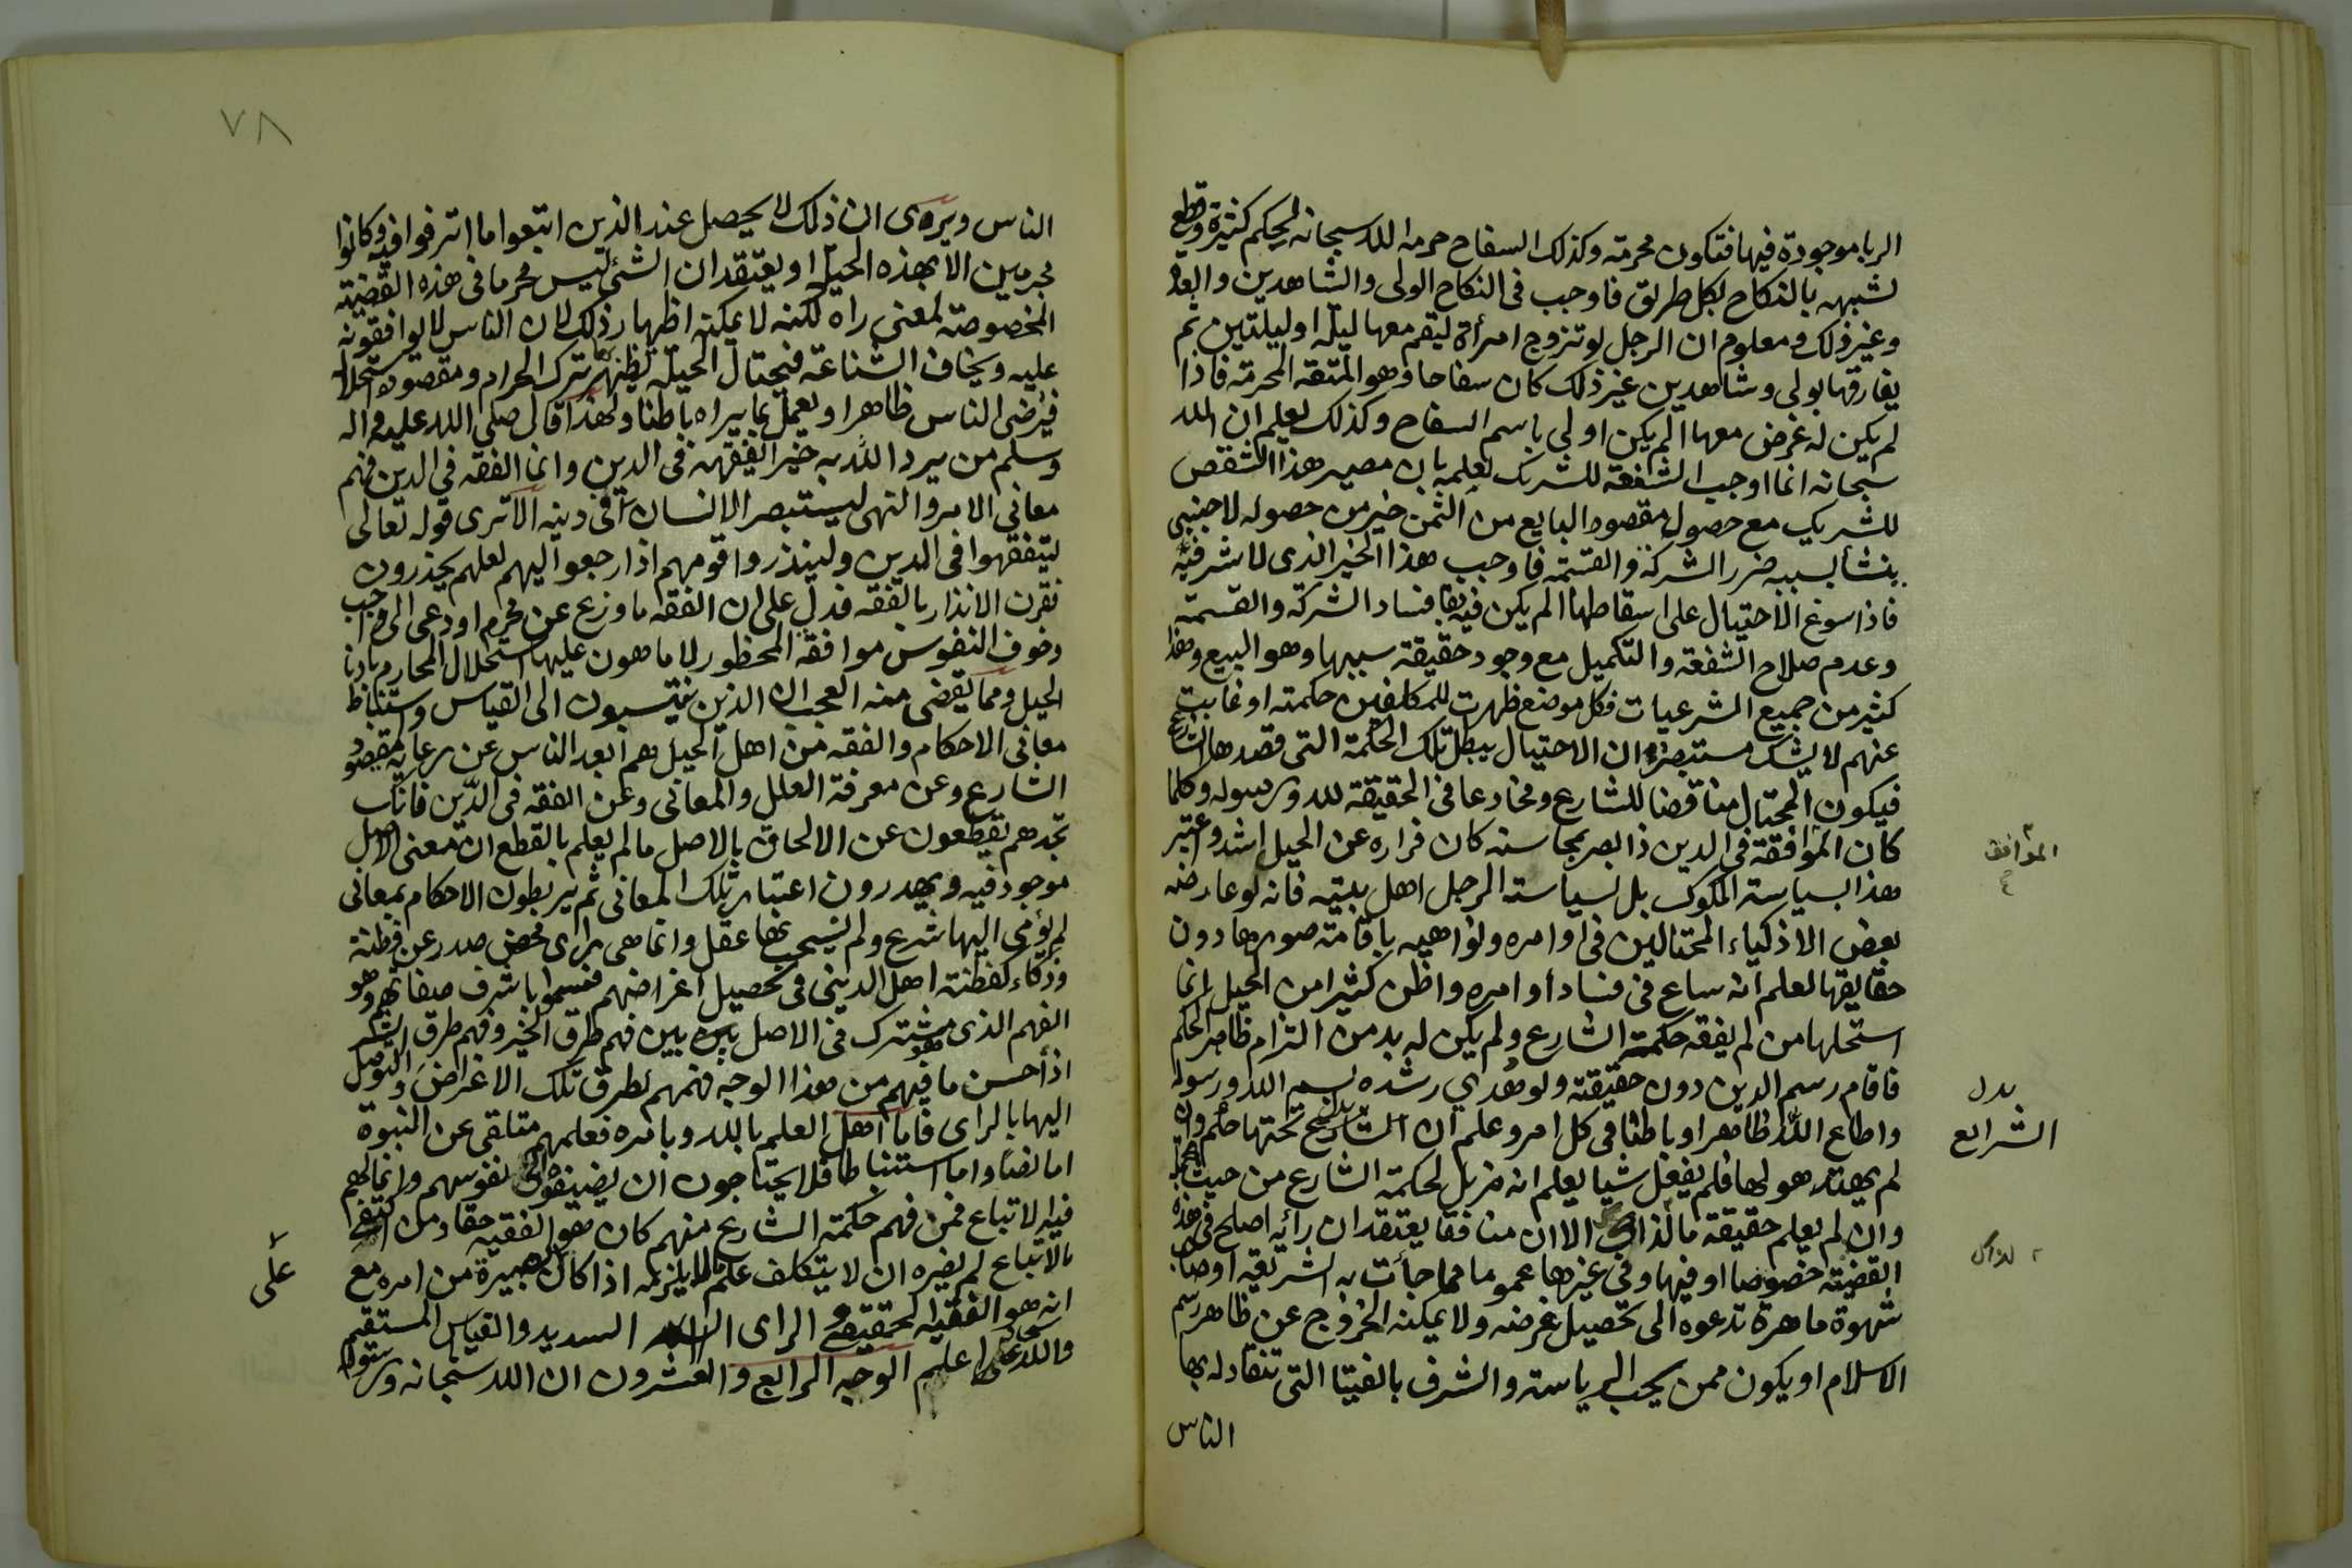 الربا موجودة فيها فتكون محرمة وكذلك السفاح حرمه الله سبحانه لحكم كثيرة وقطع
لشبهه بالنكاح بكل طريق فاوجب فى النكاح الولى والشاهدين والعدة
وغير ذلك ومعلوم ان الرجل لو تزوج امرأة ليقم معها ليلة او ليلتين ثم
يفارقها بولى وشاهدين غير ذلك كان سفاحا وهو المتعة المحرمة فاذا
لم يكن له غرض معها الم يكن اولى باسم السفاح وكذلك يعلم ان الله
سبحانه انما اوجب الشفعة للشريك لعلمه بان مصير هذا الشقص
للشريك مع حصول مقصود البايع من الثمن خير من حصوله لاجنبى
ينشأ بسببه ضرر الشركة والقسمة فاوجب هذا الخير الذى لا شر فيه
فاذا سوغ الاحتيال على اسقاطها الم يكن فيه بقا فساد الشركة والقسمة
وعدم صلاح الشفعة والتكميل مع وجود حقيقة سببها وهو البيع وهذا
كثير من جميع الشرعيات فكل موضع ظهرت للمكلفين حكمته او غابت
عنهم لا يشك مستبصر ان الاحتيال يبطل تلك الحكمة التى قصدها الشارع
فيكون المحتال مناقضا للشارع ومخادعا فى الحقيقة لله ورسوله وكلما
كان الموافقة فى الدين ذا بصر بمحاسنه كان فراره عن الحيل اشد واعتبر
هذا بسياسة الملوك بل لسياسة الرجل اهل بيته فانه لو عارضه
بعض الاذكياء المحتالين فى اوامره ونواهيه باقامة صورها دون
حقايقها لعلم انه ساع فى فساد أوامره واظن كثيرا من الحيل انما
استحلها من لم يفقه حكمة الشارع ولم يكن له بد من التزام ظاهر الحكم
فاقام رسم الدين دون حقيقته ولو هُدي رشده لسم الله ورسوله
واطاع الله ظاهرا وباطنا فى كل امر وعلم ان الشارع تحتها حكم وان
لم يهتد هو لها فلم يفعل شيا يعلم انه مزيل لحكمة الشارع من حيث
وان لم يعلم حقيقة ما لذاك الا ان منافقا يعتقد ان رأيه اصلح فى هذه
القضية خصوصا او فيها وفى غيرها عموما مما جأت به الشريعة او صاحب
شهوة ماهرة تدعوه الى تحصيل غرضه ولا يمكنه الخروج عن ظاهر رسم
الاسلام او يكون ممن يحب الرياسة والشرف بالفتيا التى تنقاد له بها
الناس
الموافق
بدل
الشرايع
لذاك
٧٨
الناس ويرى ان ذلك لا يحصل عند الذين اتبعوا ما اترفوا فيه وكانوا
مجرمين الا بهذه الحيل او يعتقد ان الشئ ليس محرما فى هذه القضية
المخصوصة لمعنى راه لكنه لا يمكنه اظهار ذلك لان الناس لا يوافقونه
عليه ويخاف الشناعة فيحتال الحيلة يظهر بها ترك الحرام ومقصوده استحلاله
فيرضى الناس ظاهرا ويعمل بما يراه باطنا ولهذا قال صلى الله عليه واله
وسلم من يرد الله به خيرا يفقهه فى الدين وانما الفقه فى الدين فهم
معانى الامر والنهى ليستبصر الانسان فى دينه الا ترى قوله تعالى
ليتفقهوا فى الدين ولينذروا قومهم اذا رجعوا اليهم لعلهم يحذرون
نقرن الانذار بالفقه فدل على ان الفقه ما وزع عن محرم او دعى الى واجب
وخوف النفوس موافقة المحظور لا ما هون عليها استحلال المحارم بادنا
الحيل ومما يقضى منه العجب ان الذين ينتسبون الى القياس واستنباط
معانى الاحكام والفقه من اهل الحيل هم ابعد الناس عن رعاية مقصود
الشارع وعن معرفة العلل والمعانى وعن الفقه فى الدين فانك
تجدهم يقطعون عن الالحاق بالاصل مالم يعلم بالقطع ان معنى الاصل
موجود فيه ويهدرون اعتبار تلك المعانى ثم يربطون الاحكام بمعانى
لم يؤمى اليها شرع ولم يستحب بها عقل وانما هى راى محض صدر عن فطنة
وذكاء كفطنة اهل الدينى فى تحصيل اغراضهم فسموا باشرف صفاتهم وهو
الفهم الذى مشترك فى الاصل بين فهم طرق الخير وفهم طرق الشر
اذ أحسن ما فيهم من هذا الوجه فهمهم لطرق تلك الاغراض والتوصل
اليها بالراى فاما اهل العلم بالله وبامره فعلمهم متلقى عن النبوة
اما نصا واما استنباطا فلا يحتاجون ان يضيفوا الى نفوسهم وانما لهم
فيه الاتباع فمن فهم حكمة الشارع منهم كان هو الفقيه حقا ومن اكتفى
بالاتباع لم يضره ان لا يتكلف علم ما لا يلزمه اذا كان على بصيرة من امره مع
انه هو الفقيه الحقيقى الراى السديد والقياس المستقيم
والله سبحانه اعلم الوجه الرابع والعشرون ان الله سبحانه ورسوله
على